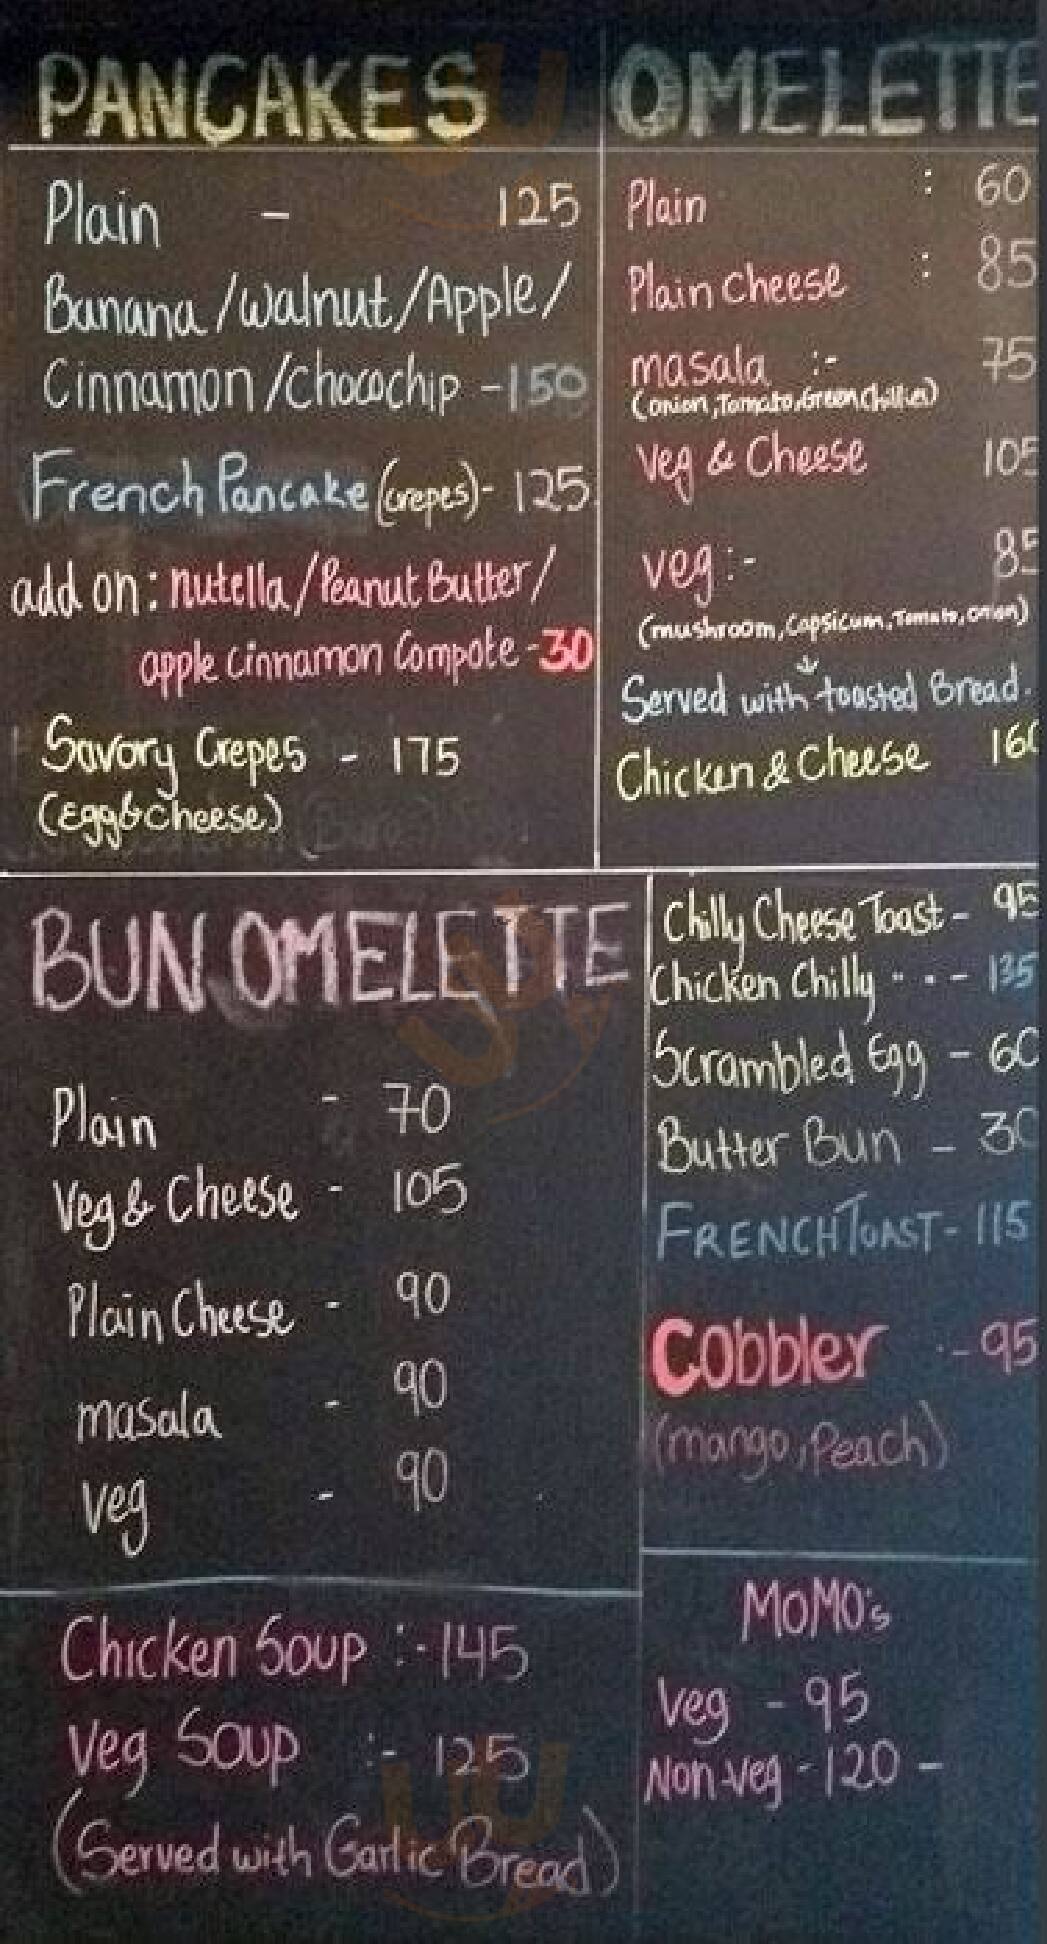 PANCAKES
Plain - 125
Banana/Walnut/Apple/
Cinnamon/Chocochip - 150
French Pancake (crepes) - 125
add on: nutella/Peanut Butter/
apple cinnamon Compote - 30
Savory Crepes - 175
(Egg & cheese)
OMELETTE
Plain : 60
Plain Cheese : 85
masala :- 75
(Onion, Tomato, Green Chillies)
Veg & Cheese 105
veg :- 85
(mushroom, Capsicum, Tomato, onion)
Served with toasted Bread.
Chicken & Cheese 160
BUN OMELETTE
Plain - 70
Veg & Cheese - 105
Plain Cheese - 90
masala - 90
veg - 90
Chilly Cheese Toast - 95
Chicken Chilly - - - 135
Scrambled Egg - 60
Butter Bun - 30
FRENCH TOAST - 115
Cobbler - 95
(mango, Peach)
Chicken Soup :- 145
Veg Soup :- 125
(Served with Garlic Bread)
MOMO's
Veg - 95
Non-veg - 120 -